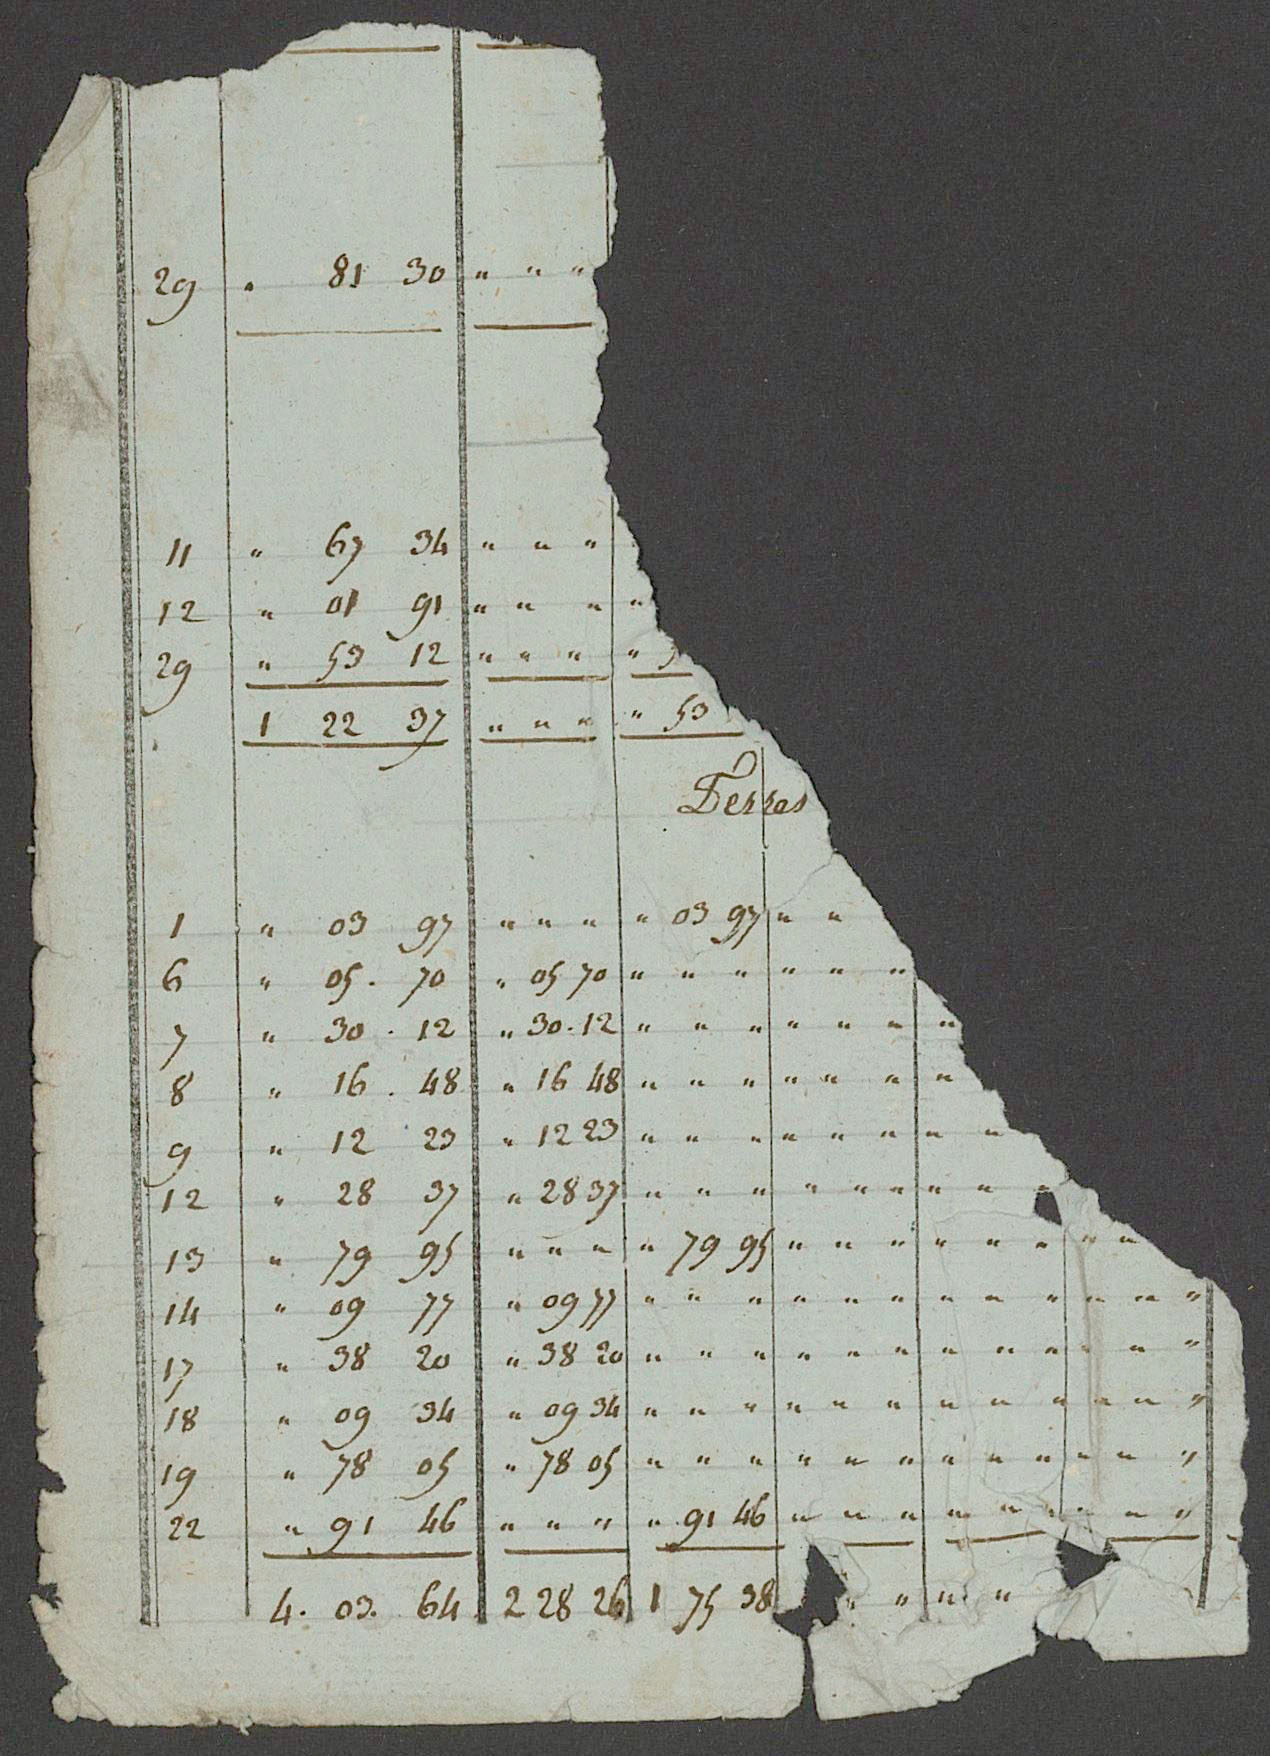 29 " 81 30 " " "
11 " 67 34 " " "
12 " 01 91 " " " "
29 " 53 12 " " " "
1 22 37 " " " " 53
Terres
1 " 03 97 " " " " 03 97 " "
6 " 05. 70 " 05 70 " " " " " "
7 " 30. 12 " 30. 12 " " " " " " "
8 " 16. 48 " 16 48 " " " " " " "
9 " 12 23 " 12 23 " " " " " " " "
12 " 28 37 " 28 37 " " " " " " " " "
13 " 79 95 " " " " 79 95 " " " " " " " "
14 " 09 77 " 09 77 " " " " " " " " " " " "
17 " 38 20 " 38 20 " " " " " " " " " " " "
18 " 09 34 " 09 34 " " " " " " " " " " " "
19 " 78 05 " 78 05 " " " " " " " " " " " "
22 " 91 46 " " " " 91 46 " " " " " " " " "
4. 03. 64. 2 28 26 1 75 38 " " " "